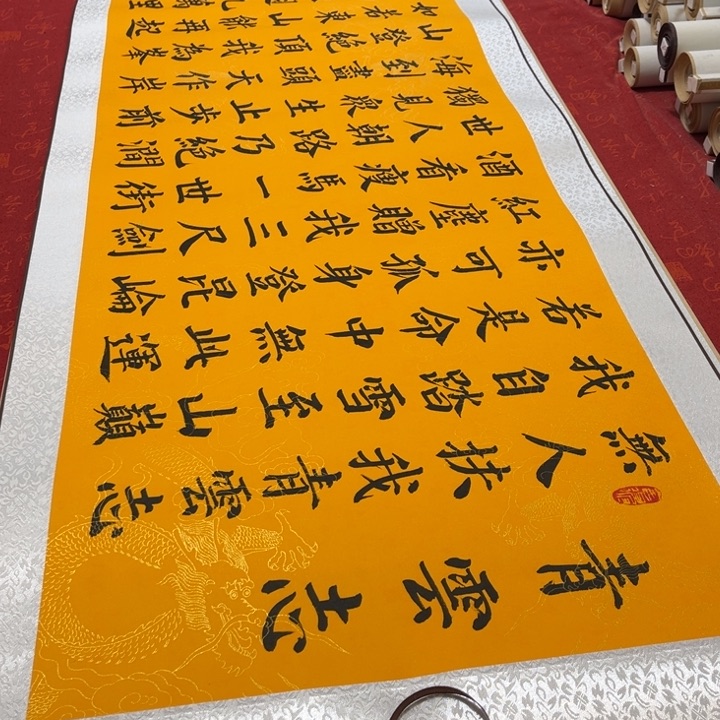 青雲志
無人扶我青雲志
我自踏雪至山巔
若是命中無此運
亦可孤身登昆崙
紅塵贈我三尺劍
酒看瘦馬一世街
世人朝路乃絕澗
獨見眾生止步前
海到盡頭天作岸
山登絕頂我為峯
如若東山能再起